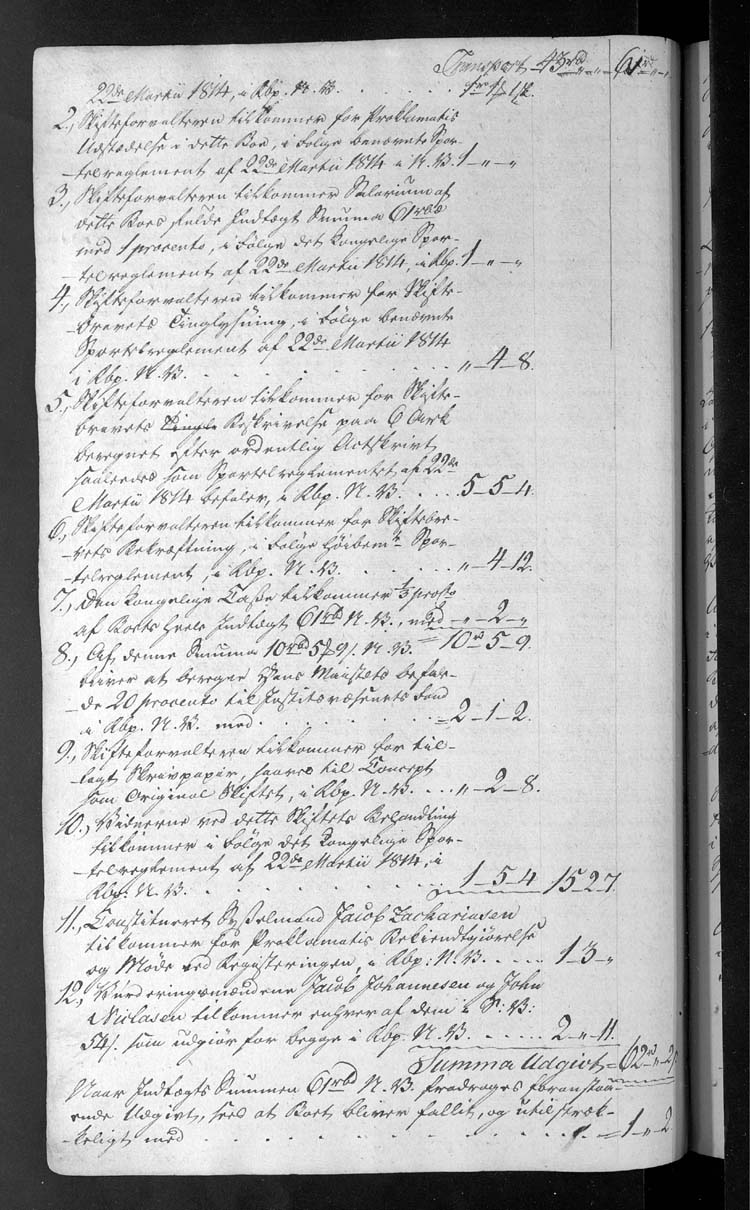 Transport 43rbd „ „ 61rbd „ „
22de Martii 1814, i Rbp. N. V. . . . . . 
2., Skifteforvalteren tilkommer for Proklamatis
Udstædelse i dette Boe, i følge benævnte Spor-
-telreglement af 22de Martii 1814 i N. V. 1 - „ - „
3., Skifteforvalteren tilkommer Salarium af
dette Boes fulde Indtægt Summa 61rbd
med 1 procento, i følge det kongelige Spor-
-telreglement af 22de Martii 1814, i Rbp. 1 - „ - „
4., Skifteforvalteren tilkommer for Skifte-
-brevets Tinglysning, i følge benævnte
Sportelreglement af 22de Martii 1814
i Rbp. N. V. . . . . . . . . „ - 4 - 8.
5., Skifteforvalteren tilkommer for Skifte-
brevets Beskrivelse paa 6 Ark
beregnet efter ordentlig Actskrivt
saaledes som Sportelreglementet af 22de
Martii 1814 befaler, i Rbp. N. V. . . . . 5 - 5 - 4.
6., Skifteforvalteren tilkommer for Skiftebre-
-vets Bekræftning, i følge høibemte Spor-
-telreglement, i Rbp. N. V. . . . . . „ - 4 - 12.
7., Den kongelige Casse tilkommer 1/3 procto
af Boets heele Indtægt 61rbd N. V., med - „ - 2 - „
8., Af denne Summa 10rbd 5 9 N. V. = 10rd 5 - 9.
bliver at beregne Hans Maiestets befal-
-de 20 procento til Justitsvæsenets fond
i Rbp. N. V. med . . . . . . = 2 - 1 - 2.
9., Skifteforvalteren tilkommer for til-
-lagt Skrivpapir, saavel til Concept
som Original Skiftet, i Rbp. N. V. . . . „ - 2 - 8.
10., Vidnerne ved dette Skiftets Behandling
tilkommer i følge det kongelige Spor-
-telreglement af 22de Martii 1814, i
Rbp. N. V. . . . . . . . 1 - 5 - 4 15 - 2 - 7.
11., Constitueret Sysselmand Jacob Zachariasen
tilkommer for Proklamatis Bekiendtgiørelse
og Møde ved Registeringen, i Rbp: N. V. . . . . 1 - 3 - „
12., Vurderingsmændene Jacob Johannesen og John
Niclasen tilkommer enhver af dem i S: V:
54 som udgiør for begge i Rbp. N. V. . . . . . 2 - „ - 11.
Summa Udgivt = 62rd „ - 2
Naar Indtægts Summen 61rbd N. V. fradrages foranstaa-
ende Udgivt, sees at Boet bliver fallit, og utilstræk-
-keligt med . . . . . . . . . . = 1 - „ - 2